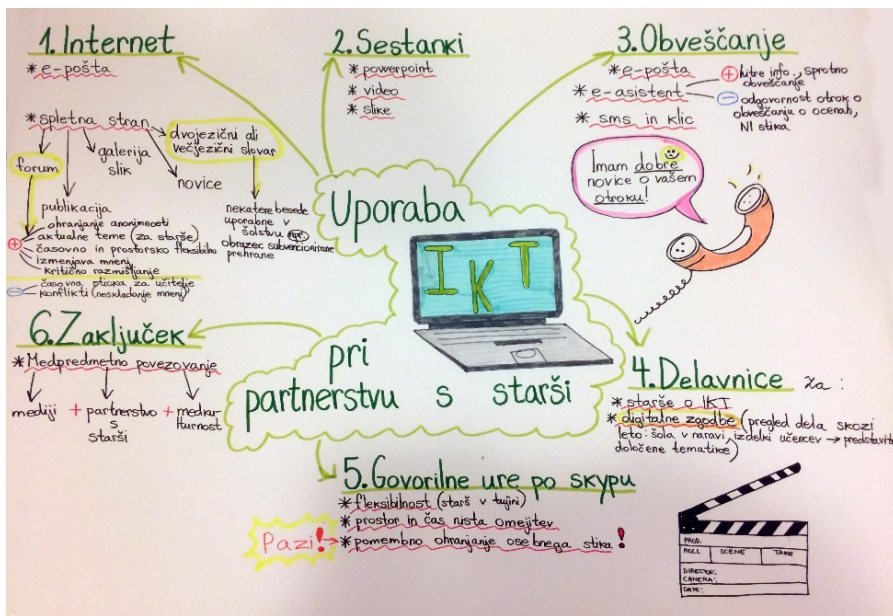 1. Internet
* e-pošta
* spletna stran
forum
publikacija
galerija
slik
novice
dvojezični ali
večjezični slovar
nekatere besede
uporabne v
šolstvu npr.
obrazec subvencionirane
prehrane
+
ohranjanje anonimnosti
aktualne teme (za starše)
časovno in prostorsko fleksibilno
izmenjava mnenj
kritično razmišljanje
-
časovna stiska za učitelje
konflikti (neskladanje mnenj)
2. Sestanki
* powerpoint
* video
* slike
3. Obveščanje
* e-pošta
* e-asistent
+ hitre info., sprotno
obveščanje
- odgovornost otrok o
obveščanju o ocenah,
NI stika
* sms in klic
Imam dobre
novice o vašem
otroku!
Uporaba
IKT
pri
partnerstvu s starši
4. Delavnice za:
* starše o IKT
* digitalne zgodbe (pregled dela skozi
leto: šola v naravi, izdelki učencev → predstavitev
določene tematike)
5. Govorilne ure po skypu
* fleksibilnost (starš v tujini)
* prostor in čas nista omejitev
Pazi! → * pomembno ohranjanje osebnega stika!
6. Zaključek
* Medpredmetno povezovanje
mediji + partnerstvo + medku-
s lturnost
starši
PROD.
ROLL SCENE TAKE
DIRECTOR:
CAMERA:
DATE: